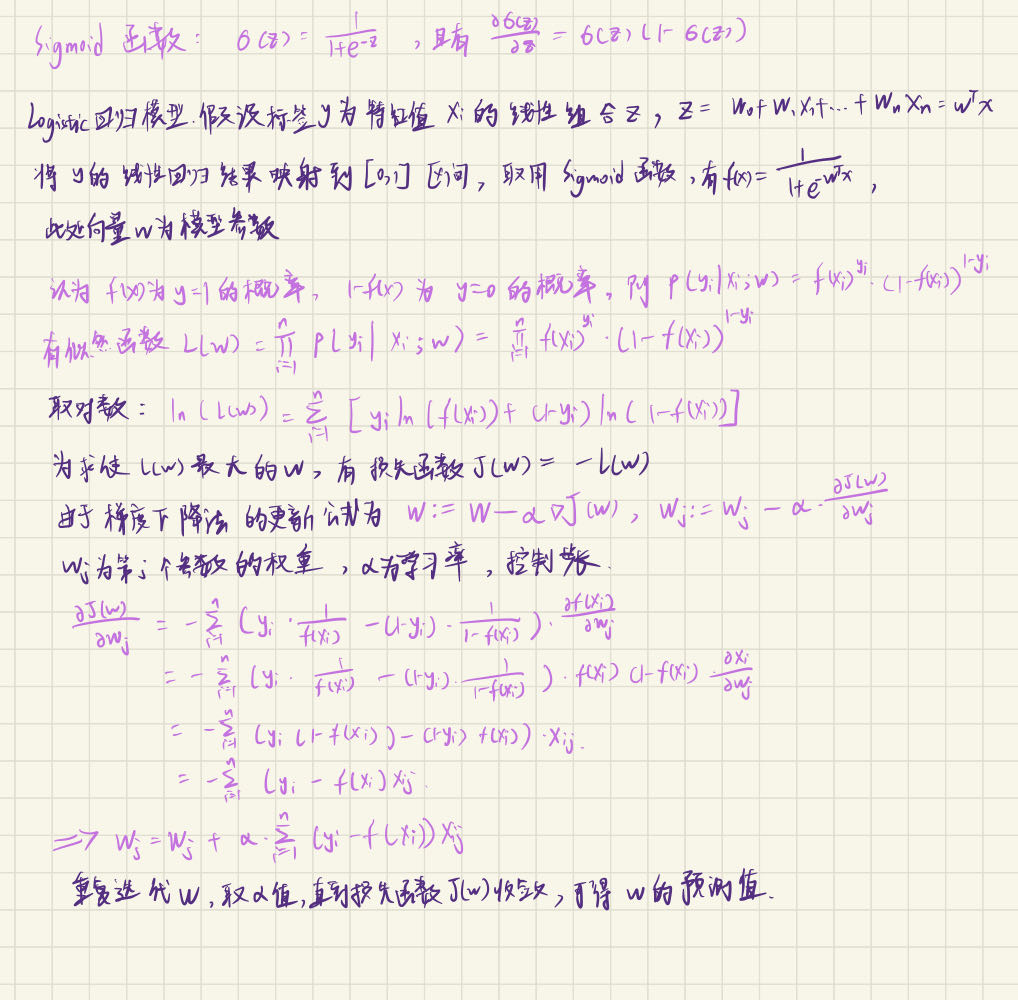 Sigmoid 函数: σ(z) = 1/(1+e^{-z}) , 且有 ∂σ(z)/∂z = σ(z) (1-σ(z))
Logistic回归模型.假设标签y为特征值 xi 的线性组合z, z = w0+w1x1+...+wnxn = w^T x
将 y的线性回归结果映射到[0,1]区间, 取用 Sigmoid 函数,有f(x)= 1/(1+e^{-w^T x}) ,
此处向量w为模型参数
认为 f(x)为y=1的概率, 1-f(x) 为 y=0的概率, 则 P(yi|xi;w) = f(xi)^{yi} · (1-f(xi))^{1-yi}
有似然函数 L(w) = ∏_{i=1}^{n} P(yi | xi;w) = ∏_{i=1}^{n} f(xi)^{yi} · (1-f(xi))^{1-yi}
取对数: ln(L(w)) = Σ_{i=1}^{n} [yi ln(f(xi))+(1-yi) ln(1-f(xi))]
为求使 L(w) 最大的w, 有损失函数J(w) = -L(w)
由于梯度下降法的更新公式为 w := w-α∇J(w), wj := wj - α·∂J(w)/∂wj
wj为第j个参数的权重, α为学习率, 控制步长.
∂J(w)/∂wj = -Σ_{i=1}^{n} (yi · 1/f(xi) - (1-yi) · 1/(1-f(xi))) · ∂f(xi)/∂wj
= -Σ_{i=1}^{n} (yi · 1/f(xi) - (1-yi) · 1/(1-f(xi))) · f(xi) (1-f(xi) · ∂xi/∂wj
= -Σ_{i=1}^{n} (yi (1-f(xi)) - (1-yi) f(xi)) · xij.
= -Σ_{i=1}^{n} (yi - f(xi) xij.
⟹ wj = wj + α·Σ_{i=1}^{n} (yi - f(xi)) xij
重复迭代w,取α值,直到损失函数J(w)收敛,可得 w的预测值.